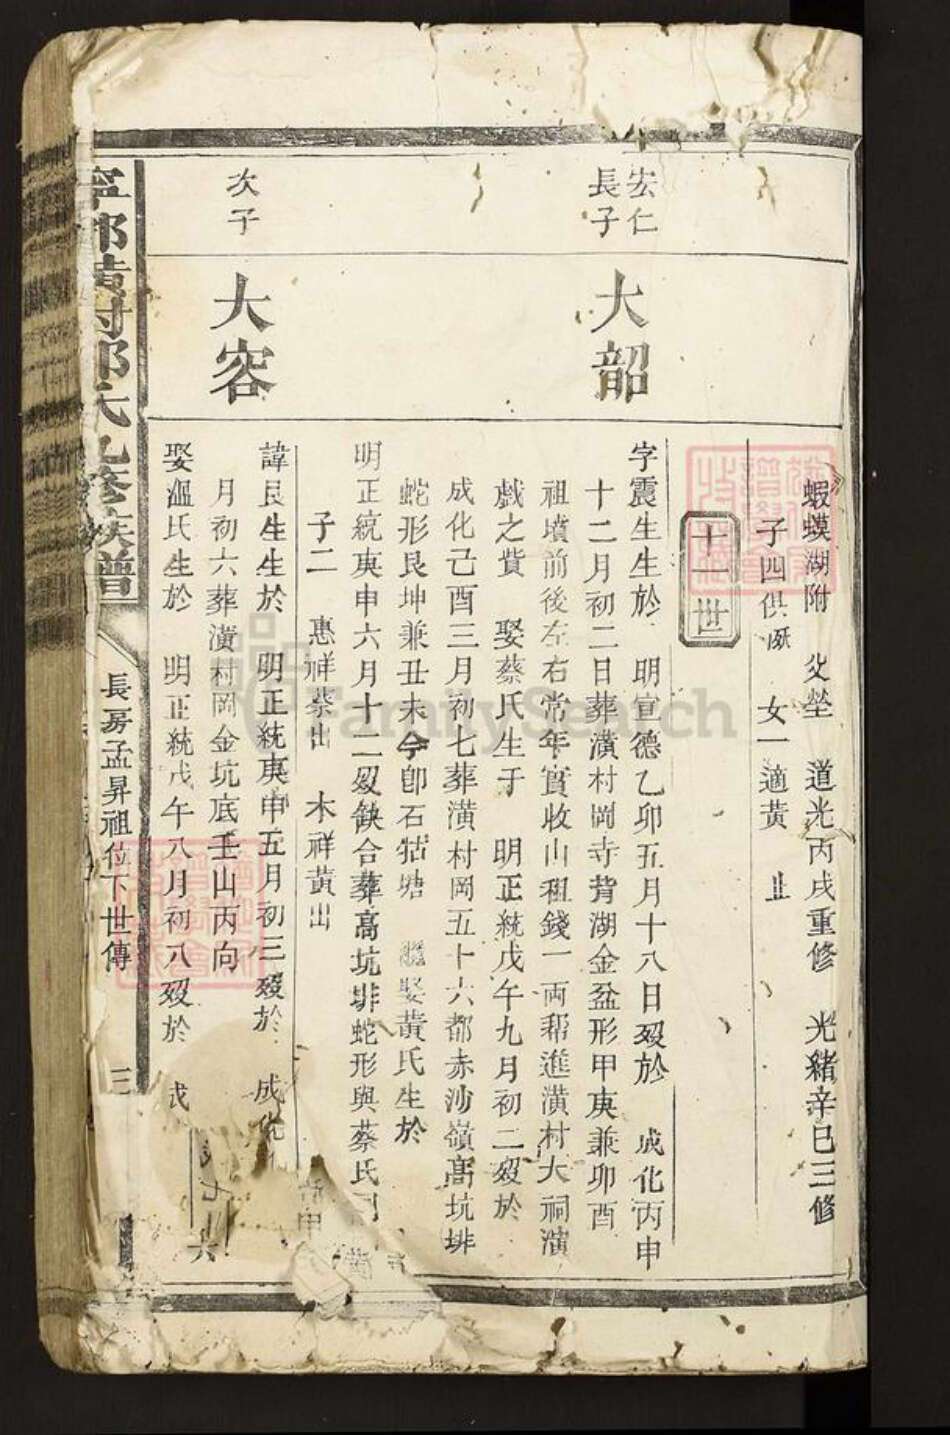 蝦蟆湖附 父塋 道光丙戌重修 光緒辛巳三修
子四俱 女一適黃 止
十一世
宏仁
長子
大韶
字震生生於 明宣德乙卯五月十八日歿於 成化丙申
十二月初二日葬潢村岡寺背湖金盆形甲庚兼卯酉
祖墳前後左右常年實收山租錢一両帮進潢村大祠演
戲之貲 娶蔡氏生于 明正統戊午九月初二歿於
成化己酉三月初七葬潢村岡五十六都赤沙嶺高坑排
蛇形艮坤兼丑未今卽石牯塘 繼娶黃氏生於
明正統庚申六月十二歿缺合葬高坑排蛇形與蔡氏
子二 惠祥蔡出 木祥黃出
次子
大容
諱良生生於 明正統庚申五月初三歿於 成化
月初六葬潢村岡金坑底壬山丙向
娶溫氏生於 明正統戊午八月初八歿於
氏九修族譜
長房孟昇祖位下世傳
三
FamilySearch